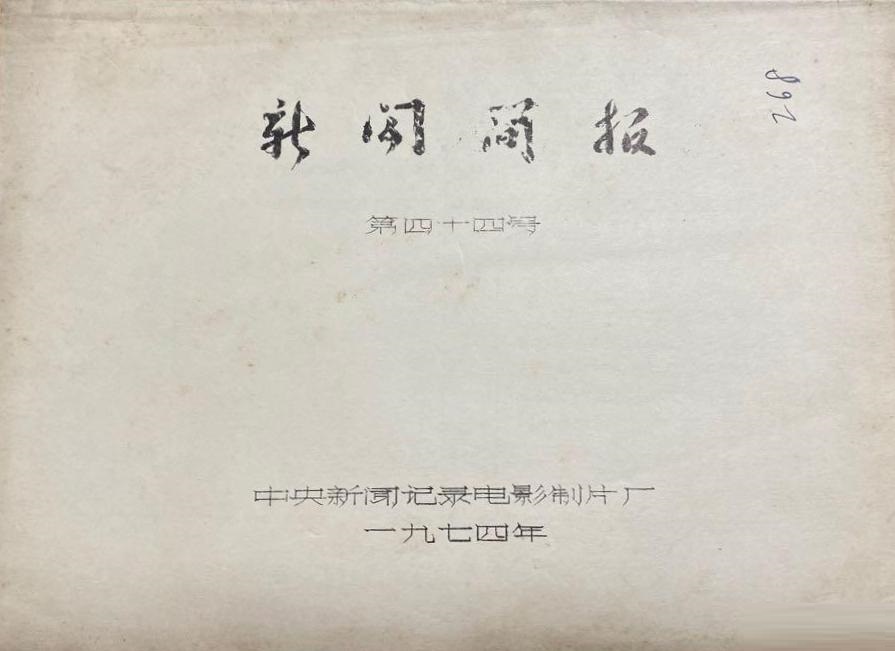 新闻简报
892
第四十四号
中央新闻记录电影制片厂
一九七四年